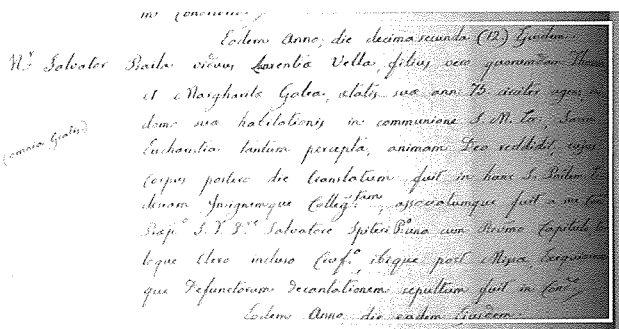 in Conditorio
Eodem Anno, die decima secunda (12) Ejusdem
N.r Salvator Braita viduus Laurentia Vella, filius vero quorumdam Thoma
et Margharita Galea, ætatis suæ ann. 75 circiter agens, in
domo suæ habitationis in communione S. M. Ec. Sacra
(omnia Gratis)
Eucharistia tantum percepta, animam Deo reddidit, cujus
Corpus postero die translatum fuit in hanc S.
Insignemque Colleg.tam, associatumque fuit a me
S. T. D.re Salvatore Spiteri una cum Revmo Capitulo
toque Clero incluso Crucif.o, ibique post Missa, Exequiarum
que Defunctorum decantationem sepultum fuit in Cond.o
Eodem Anno die eadem Ejusdem